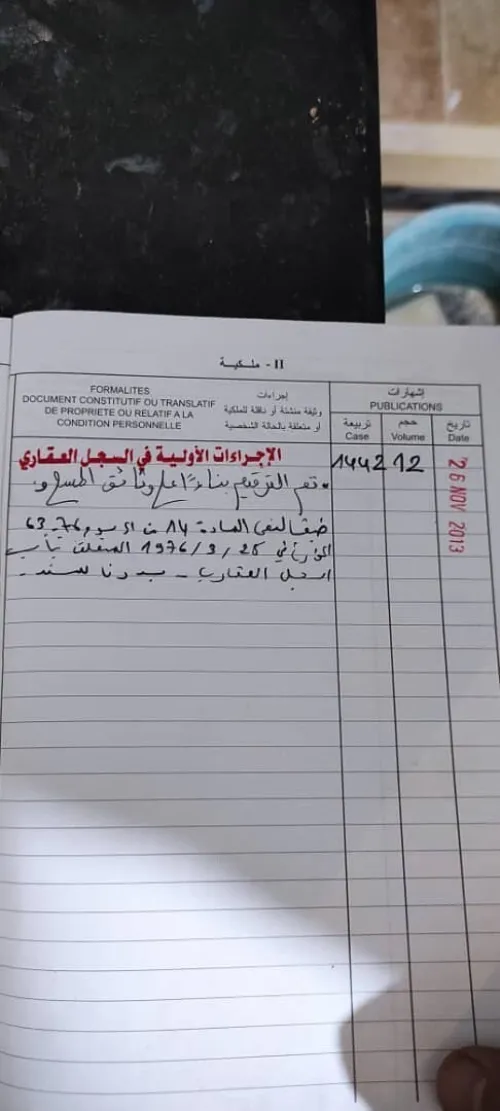 II - ملكية
FORMALITES
DOCUMENT CONSTITUTIF OU TRANSLATIF
DE PROPRIETE OU RELATIF A LA
CONDITION PERSONNELLE
إجراءات
وثيقة منشئة أو ناقلة للملكية
أو متعلقة بالحالة الشخصية
إشهارات
PUBLICATIONS
تربيعة
Case
حجم
Volume
تاريخ
Date
الإجراءات الأولية في السجل العقاري
1442
12
26 NOV 2013
تم الترقيم بناءا على وثائق المسح و
طبقا لنص المادة 14 من المرسوم 76-63
المؤرخ في 25/3/1976 المتعلق بتأسيس
السجل العقاري - بدون سند -